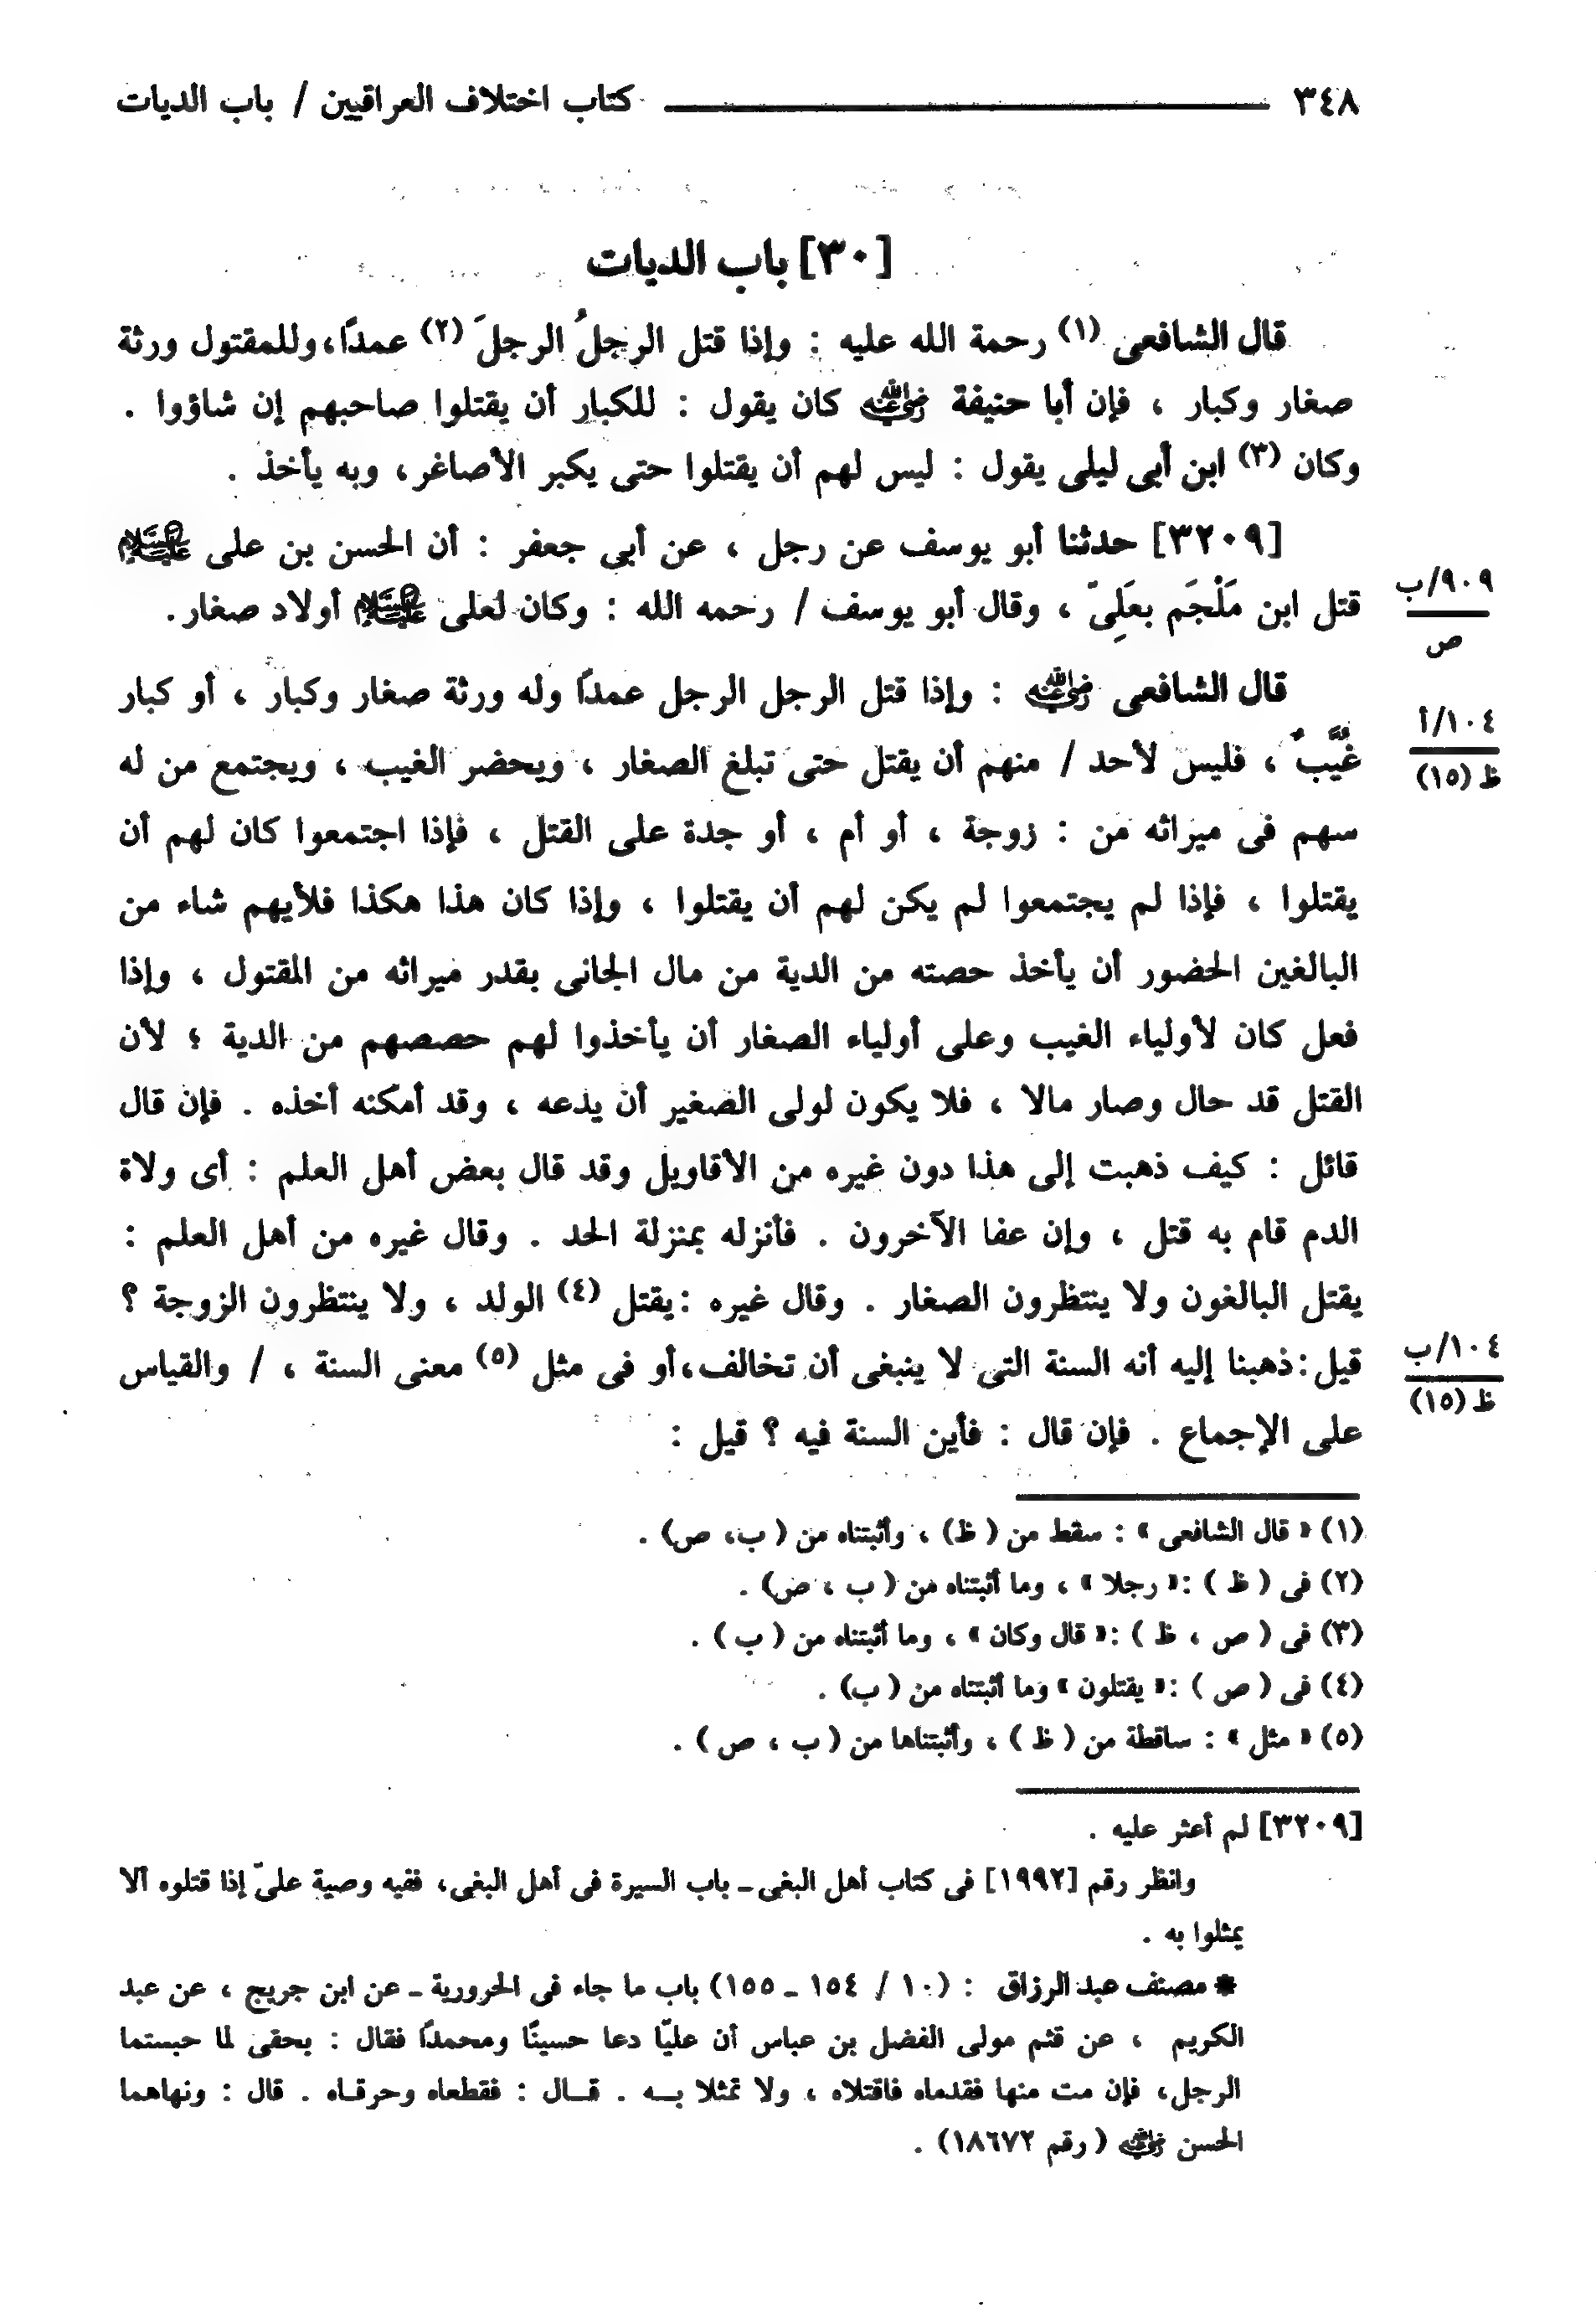 ٣٤٨ كتاب اختلاف العراقيين / باب الديات
[٣٠] باب الديات
قال الشافعى (١) رحمة الله عليه : وإذا قتل الرجلُ الرجلَ (٢) عمدًا، وللمقتول ورثة
صغار وكبار ، فإن أبا حنيفة رضي الله عنه كان يقول : للكبار أن يقتلوا صاحبهم إن شاؤوا .
وكان (٣) ابن أبى ليلى يقول : ليس لهم أن يقتلوا حتى يكبر الأصاغر، وبه يأخذ .
[٣٢٠٩] حدثنا أبو يوسف عن رجل ، عن أبى جعفر : أن الحسن بن على عليه السلام
قتل ابن مَلْجَم بعَلِىّ ، وقال أبو يوسف / رحمه الله : وكان لعلى عليه السلام أولاد صغار.
٩٠٩/ب
ص
قال الشافعى رضي الله عنه : وإذا قتل الرجل الرجل عمدًا وله ورثة صغار وكبار ، أو كبار
غُيَّبٌ ، فليس لأحد / منهم أن يقتل حتى تبلغ الصغار ، ويحضر الغيب ، ويجتمع من له
١٠٤/أ
ظ (١٥)
سهم فى ميراثه من : زوجة ، أو أم ، أو جدة على القتل ، فإذا اجتمعوا كان لهم أن
يقتلوا ، فإذا لم يجتمعوا لم يكن لهم أن يقتلوا ، وإذا كان هذا هكذا فلأيهم شاء من
البالغين الحضور أن يأخذ حصته من الدية من مال الجانى بقدر ميراثه من المقتول ، وإذا
فعل كان لأولياء الغيب وعلى أولياء الصغار أن يأخذوا لهم حصصهم من الدية ؛ لأن
القتل قد حال وصار مالا ، فلا يكون لولى الصغير أن يدعه ، وقد أمكنه أخذه . فإن قال
قائل : كيف ذهبت إلى هذا دون غيره من الأقاويل وقد قال بعض أهل العلم : أى ولاة
الدم قام به قتل ، وإن عفا الآخرون . فأنزله بمنزلة الحد . وقال غيره من أهل العلم :
يقتل البالغون ولا ينتظرون الصغار . وقال غيره :يقتل (٤) الولد ، ولا ينتظرون الزوجة ؟
قيل :ذهبنا إليه أنه السنة التى لا ينبغى أن تخالف،أو فى مثل (٥) معنى السنة ، / والقياس
١٠٤/ب
ظ (١٥)
على الإجماع . فإن قال : فأين السنة فيه ؟ قيل :
(١) « قال الشافعى » : سقط من ( ظ) ، وأثبتناه من ( ب، ص) .
(٢) فى ( ظ ) :« رجلا » ، وما أثبتناه من ( ب ، ص) .
(٣) فى ( ص ، ظ ) :« قال وكان » ، وما أثبتناه من ( ب ) .
(٤) فى ( ص ) :« يقتلون » وما أثبتناه من ( ب) .
(٥) « مثل » : ساقطة من ( ظ ) ، وأثبتناها من ( ب ، ص ) .
[٣٢٠٩] لم أعثر عليه .
وانظر رقم [١٩٩٢] فى كتاب أهل البغى ـ باب السيرة فى أهل البغى، ففيه وصية علىّ إذا قتلوه ألا
يمثلوا به .
* مصنف عبد الرزاق : (١٠ / ١٥٤ ـ ١٥٥) باب ما جاء فى الحرورية ـ عن ابن جريج ، عن عبد
الكريم ، عن قثم مولى الفضل بن عباس أن عليّا دعا حسينًا ومحمدًا فقال : بحقى لما حبستما
الرجل، فإن مت منها فقدماه فاقتلاه ، ولا تمثلا بـه . قـال : فقطعاه وحرقـاه . قال : ونهاهما
الحسن رضي الله عنه ( رقم ١٨٦٧٢) .